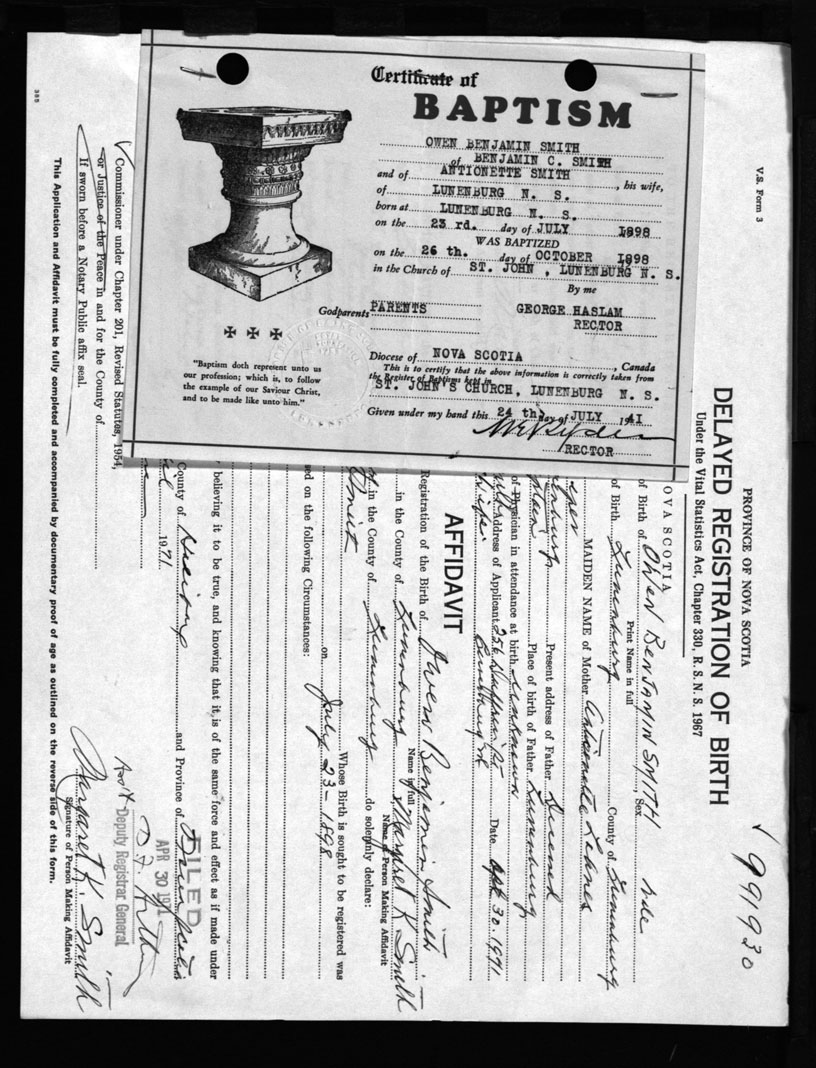 Certificate of
BAPTISM
OWEN BENJAMIN SMITH
of BENJAMIN C. SMITH
and of ANTIONETTE SMITH, his wife,
of LUNENBURG N. S.
born at LUNENBURG N. S.
on the 23 rd. day of JULY 1898
WAS BAPTIZED
on the 26 th. day of OCTOBER 1898
in the Church of ST. JOHN , LUNENBURG N. S.
By me
Godparents PARENTS GEORGE HASLAM
RECTOR
"Baptism doth represent unto us
our profession; which is, to follow
the example of our Saviour Christ,
and to be made like unto him."
Diocese of NOVA SCOTIA, Canada
This is to certify that the above information is correctly taken from
the Register of Baptisms held in
ST. JOHN'S CHURCH, LUNENBURG N. S.
Given under my hand this 24 th. day of JULY 1941
RECTOR
V.S. Form 3
991930
PROVINCE OF NOVA SCOTIA
DELAYED REGISTRATION OF BIRTH
Under the Vital Statistics Act, Chapter 330, R. S. N. S. 1967
OVA SCOTIA
of Birth of Owen Benjamin SMITH, Sex
Print Name in full
of Birth Lunenburg County of Lunenburg
MAIDEN NAME of Mother
Present address of Father
Place of birth of Father Lunenburg
of Physician in attendance at birth unknown
Address of Applicant Date 30 1971
AFFIDAVIT
Registration of the Birth of Owen Benjamin Smith
Name in full
in the County of Lunenburg Margaret K Smith
Name of Person Making Affidavit
of in the County of Lunenburg do solemnly declare:
Whose Birth is sought to be registered was
on July 23 - 1898
ed on the following Circumstances:
believing it to be true, and knowing that it is of the same force and effect as if made under
County of and Province of
1971
FILED
APR 30 1971
Deputy Registrar General
Margaret K. Smith
Signature of Person Making Affidavit
Commissioner under Chapter 201, Revised Statutes, 1954,
or Justice of the Peace in and for the County of
If sworn before a Notary Public affix seal.
This Application and Affidavit must be fully completed and accompanied by documentary proof of age as outlined on the reverse side of this form.
385